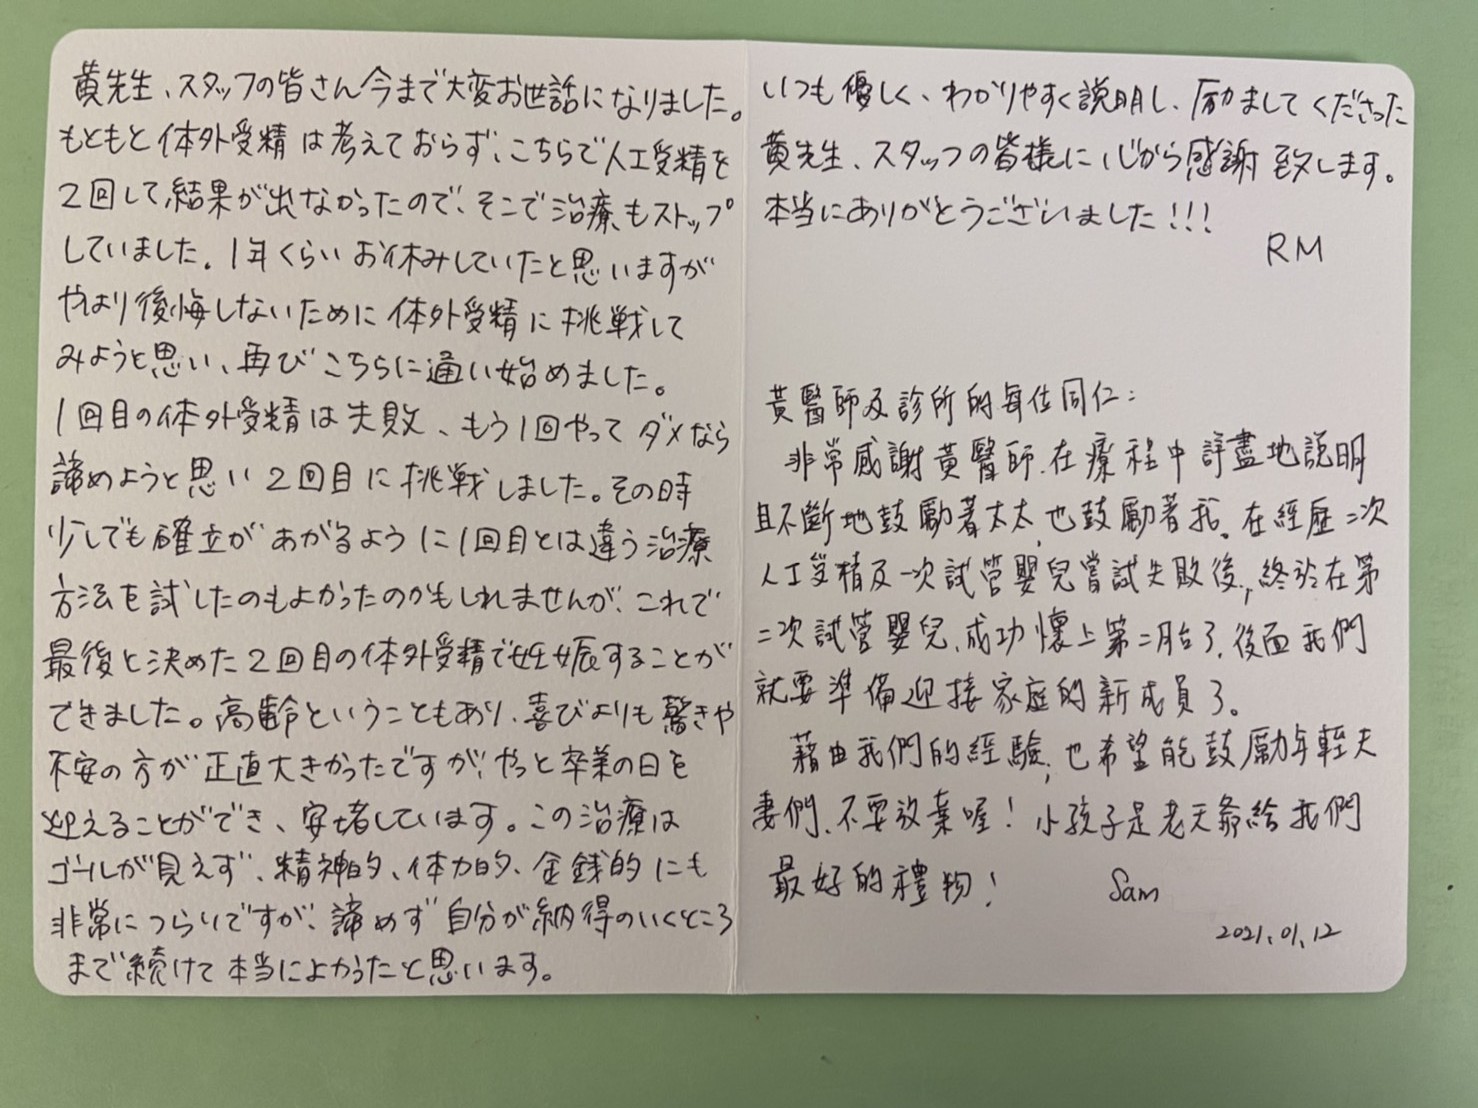 黄先生、スタッフの皆さん今まで大変お世話になりました。
もともと体外受精は考えておらず、こちらで人工受精を
2回して結果が出なかったので、そこで治療もストップ
していました。1年くらいお休みしていたと思いますが
やはり後悔しないために体外受精に挑戦して
みようと思い、再びこちらに通い始めました。
1回目の体外受精は失敗、もう1回やってダメなら
諦めようと思い2回目に挑戦しました。その時
少しでも確立があがるように1回目とは違う治療
方法を試したのもよかったのかもしれませんが、これで
最後と決めた2回目の体外受精で妊娠することが
できました。高齢ということもあり、喜びよりも驚きや
不安の方が正直大きかったですが、やっと卒業の日を
迎えることができ、安堵しています。この治療は
ゴールが見えず、精神的、体力的、金銭的にも
非常につらいですが、諦めず自分が納得のいくところ
まで続けて本当によかったと思います。
いつも優しく、わかりやすく説明し、励ましてくださった
黄先生、スタッフの皆様に心から感謝致します。
本当にありがとうございました!!!
RM
黃醫師及診所的每位同仁:
非常感謝黃醫師,在療程中詳盡地說明
且不斷地鼓勵著太太,也鼓勵著我。在經歷二次
人工受精及一次試管嬰兒嘗試失敗後,終於在第
二次試管嬰兒,成功懷上第二胎了,後面我們
就要準備迎接家庭的新成員了。
藉由我們的經驗,也希望能鼓勵年輕夫
妻們,不要放棄喔!小孩子是老天爺給我們
最好的禮物!
Sam
2021.01.12